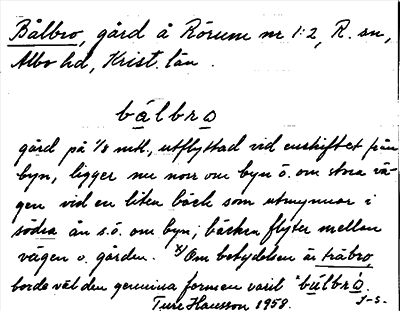 Bålbro, gård å Rörum nr 1:2, R. sn,
Albo hd, Krist. län.
bålbro
gård på 1/8 mtl., utflyttad vid enskiftet från
byn, ligger nu norr om byn ö. om stora vä-
gen vid en liten bäck som utmynnar i
södra ån s.ö. om byn; bäcken flyter mellan
vägen o. gården. x) Om betydelsen är träbro
borde väl den genuina formen varit *bulbro.
Ture Hansson 1958. J-S-